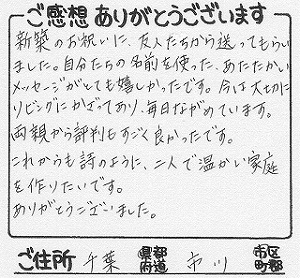 ご感想ありがとうございます
新築のお祝いに、友人たちから送ってもらい
ました。自分たちの名前を使った、あたたかい
メッセージがとても嬉しかったです。今は大切に
リビングにかざってあり、毎日ながめています。
両親から評判もすごく良かったです。
これからも詩のように、二人で温かい家庭
を作りたいです。
ありがとうございました。
ご住所 千葉 都道府県 市川 市区町郡